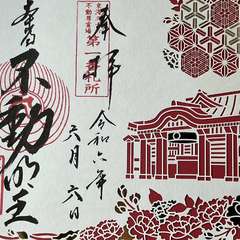 奉拝
不動尊霊場
第一番札所
令和六年
六月六日
不動明王